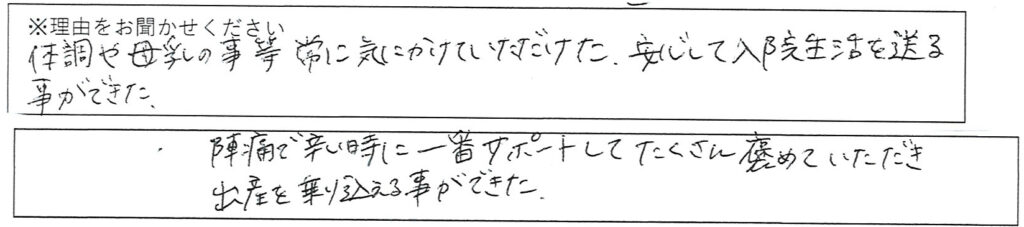 ※理由をお聞かせください
体調や母乳の事等 常に気にかけていただけた。安心して入院生活を送る
事ができた。
陣痛で辛い時に一番サポートしてたくさん褒めていただき
出産を乗り込える事ができた。